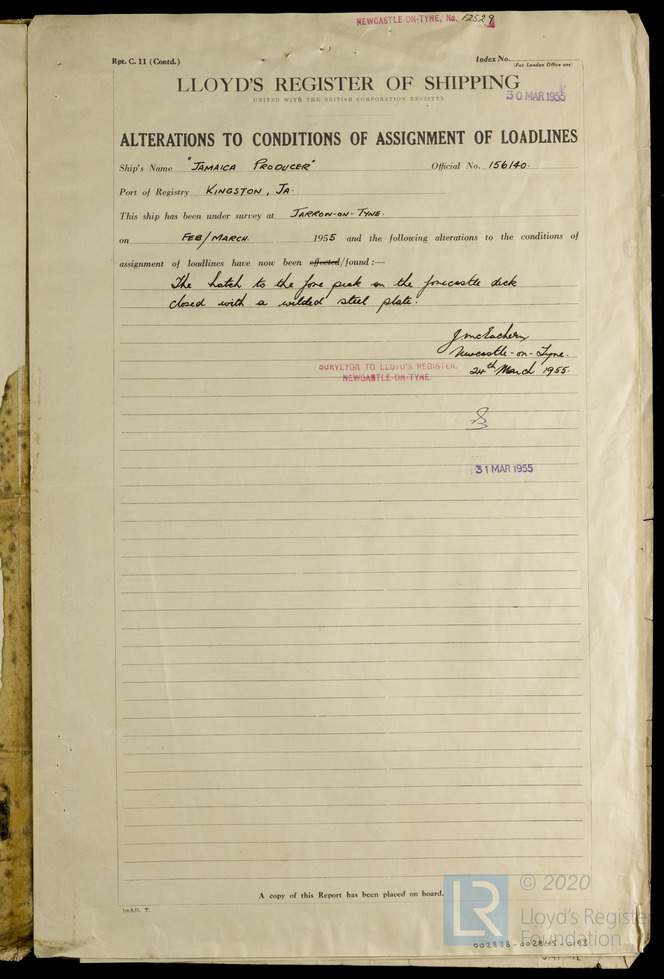 NEWCASTLE-ON-TYNE, No. F2529
Rpt. C. 11 (Contd.)
Index No.
(For London Office use)
LLOYD'S REGISTER OF SHIPPING
UNITED WITH THE BRITISH CORPORATION REGISTER
30 MAR 1955
ALTERATIONS TO CONDITIONS OF ASSIGNMENT OF LOADLINES
Ship's Name "JAMAICA PRODUCER" Official No. 156140.
Port of Registry KINGSTON, JA.
This ship has been under survey at JARROW-ON-TYNE.
on FEB/MARCH. 1955 and the following alterations to the conditions of
assignment of loadlines have now been effected/found :—
The hatch to the fore peak on the forecastle deck
closed with a welded steel plate.
J McEachern
Newcastle-on-Tyne.
SURVEYOR TO LLOYD'S REGISTER. 24th March 1955.
NEWCASTLE-ON-TYNE
31 MAR 1955
A copy of this Report has been placed on board.
T.
LR © 2020
Lloyd's Register
Foundation